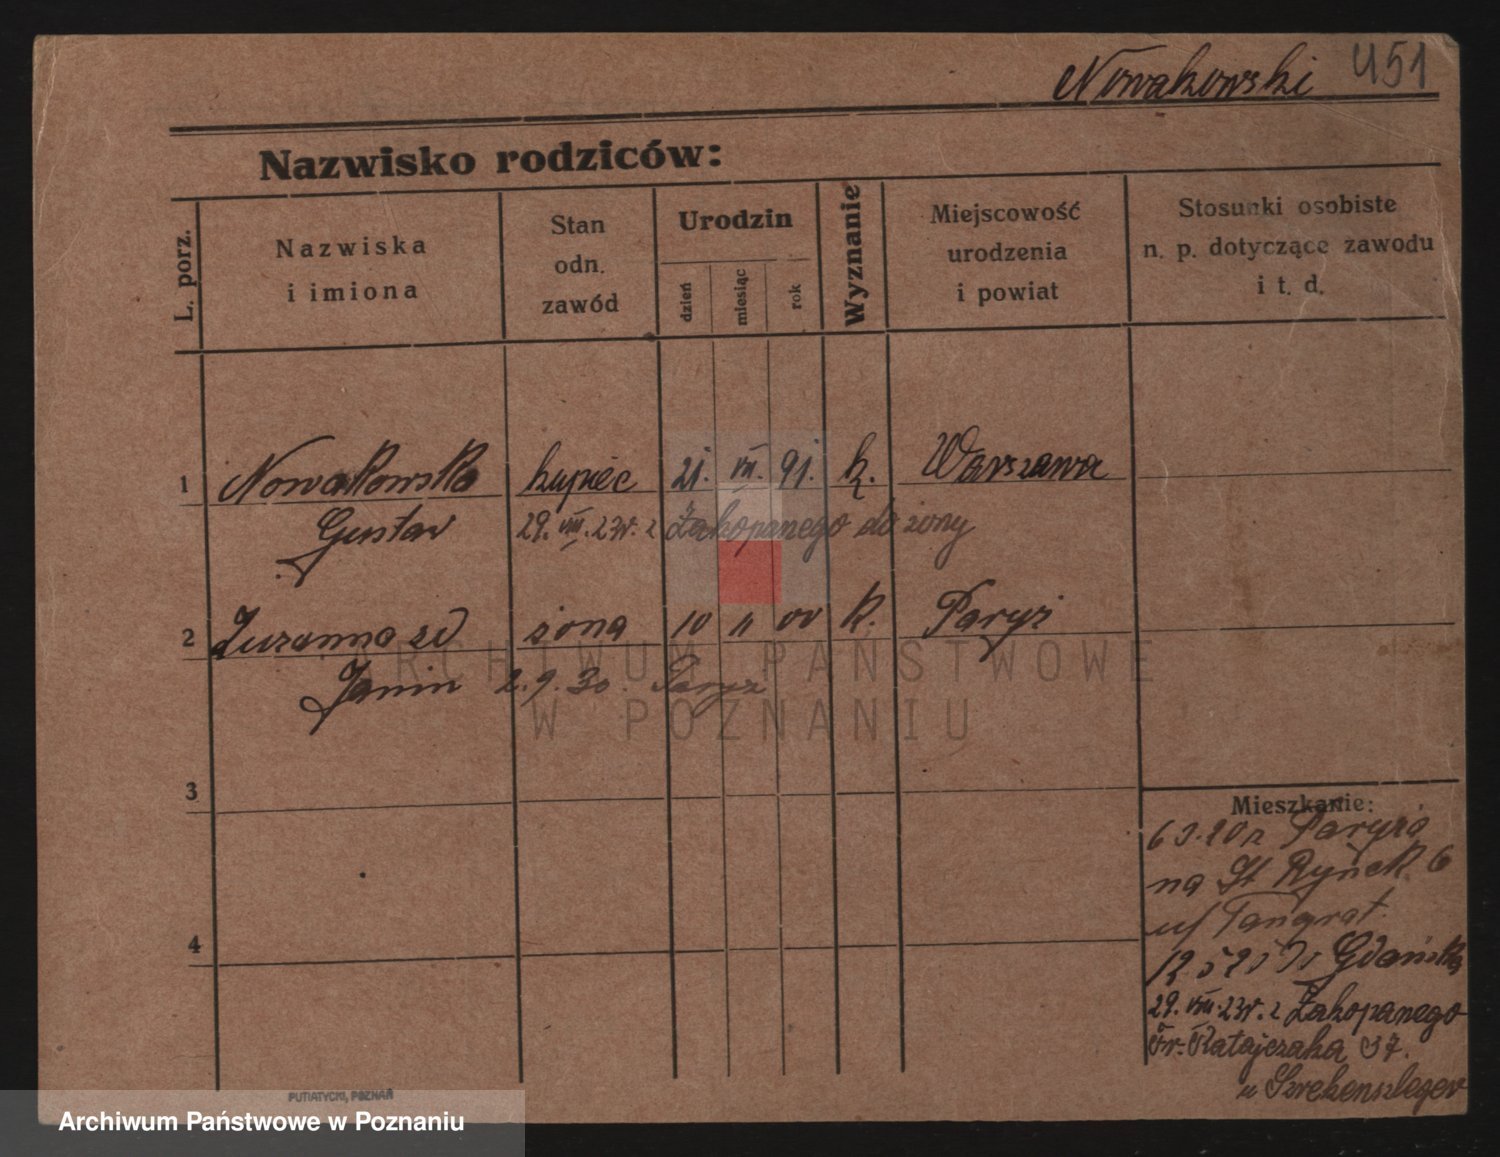 Nowakowski 451
Nazwisko rodziców:
L. porz.
Nazwiska
i imiona
Stan
odn.
zawód
Urodzin
dzień
miesiąc
rok
Wyznanie
Miejscowość
urodzenia
i powiat
Stosunki osobiste
n. p. dotyczące zawodu
i t. d.
1 Nowakowski kupiec 21. VII. 91. k. Warszawa
Gustav 29. VIII. 23r. z Zakopanego do żony
2 Zuzanna żona 10 11 00 k. Paryż
Janin 2.9.30. Paryż
ARCHIWUM PAŃSTWOWE
W POZNANIU
3
Mieszkanie:
Paryża
na St Rynek 6
4
Gdańska
29. VIII. 23r. z Zakopanego
Fr. Ratajczaka 37.
u
PUTIATYCKI, POZNAŃ
Archiwum Państwowe w Poznaniu